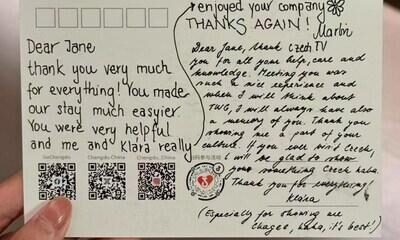 Dear Jane
thank you very much
for everything! You made
our stay much easyier.
You were very helpful
and me and Klara really
enjoyed your company
THANKS AGAIN!
Martin
Czech TV
Dear Jane, thank
you for all your help, care and
knowledge. Meeting you was
such a nice experience and
when I will think about
TWG, I will always have also
a memory of you. Thank you
showing me a part of your
culture. If you ever visit Czech,
I will be glad to show
you something Czech haha.
Thank you for everything!
Klára
(Especially for showing me
Chagee, haha, it's best!)
GoChengdu
Chengdu, China
Chengdu_China
扫码参与活动